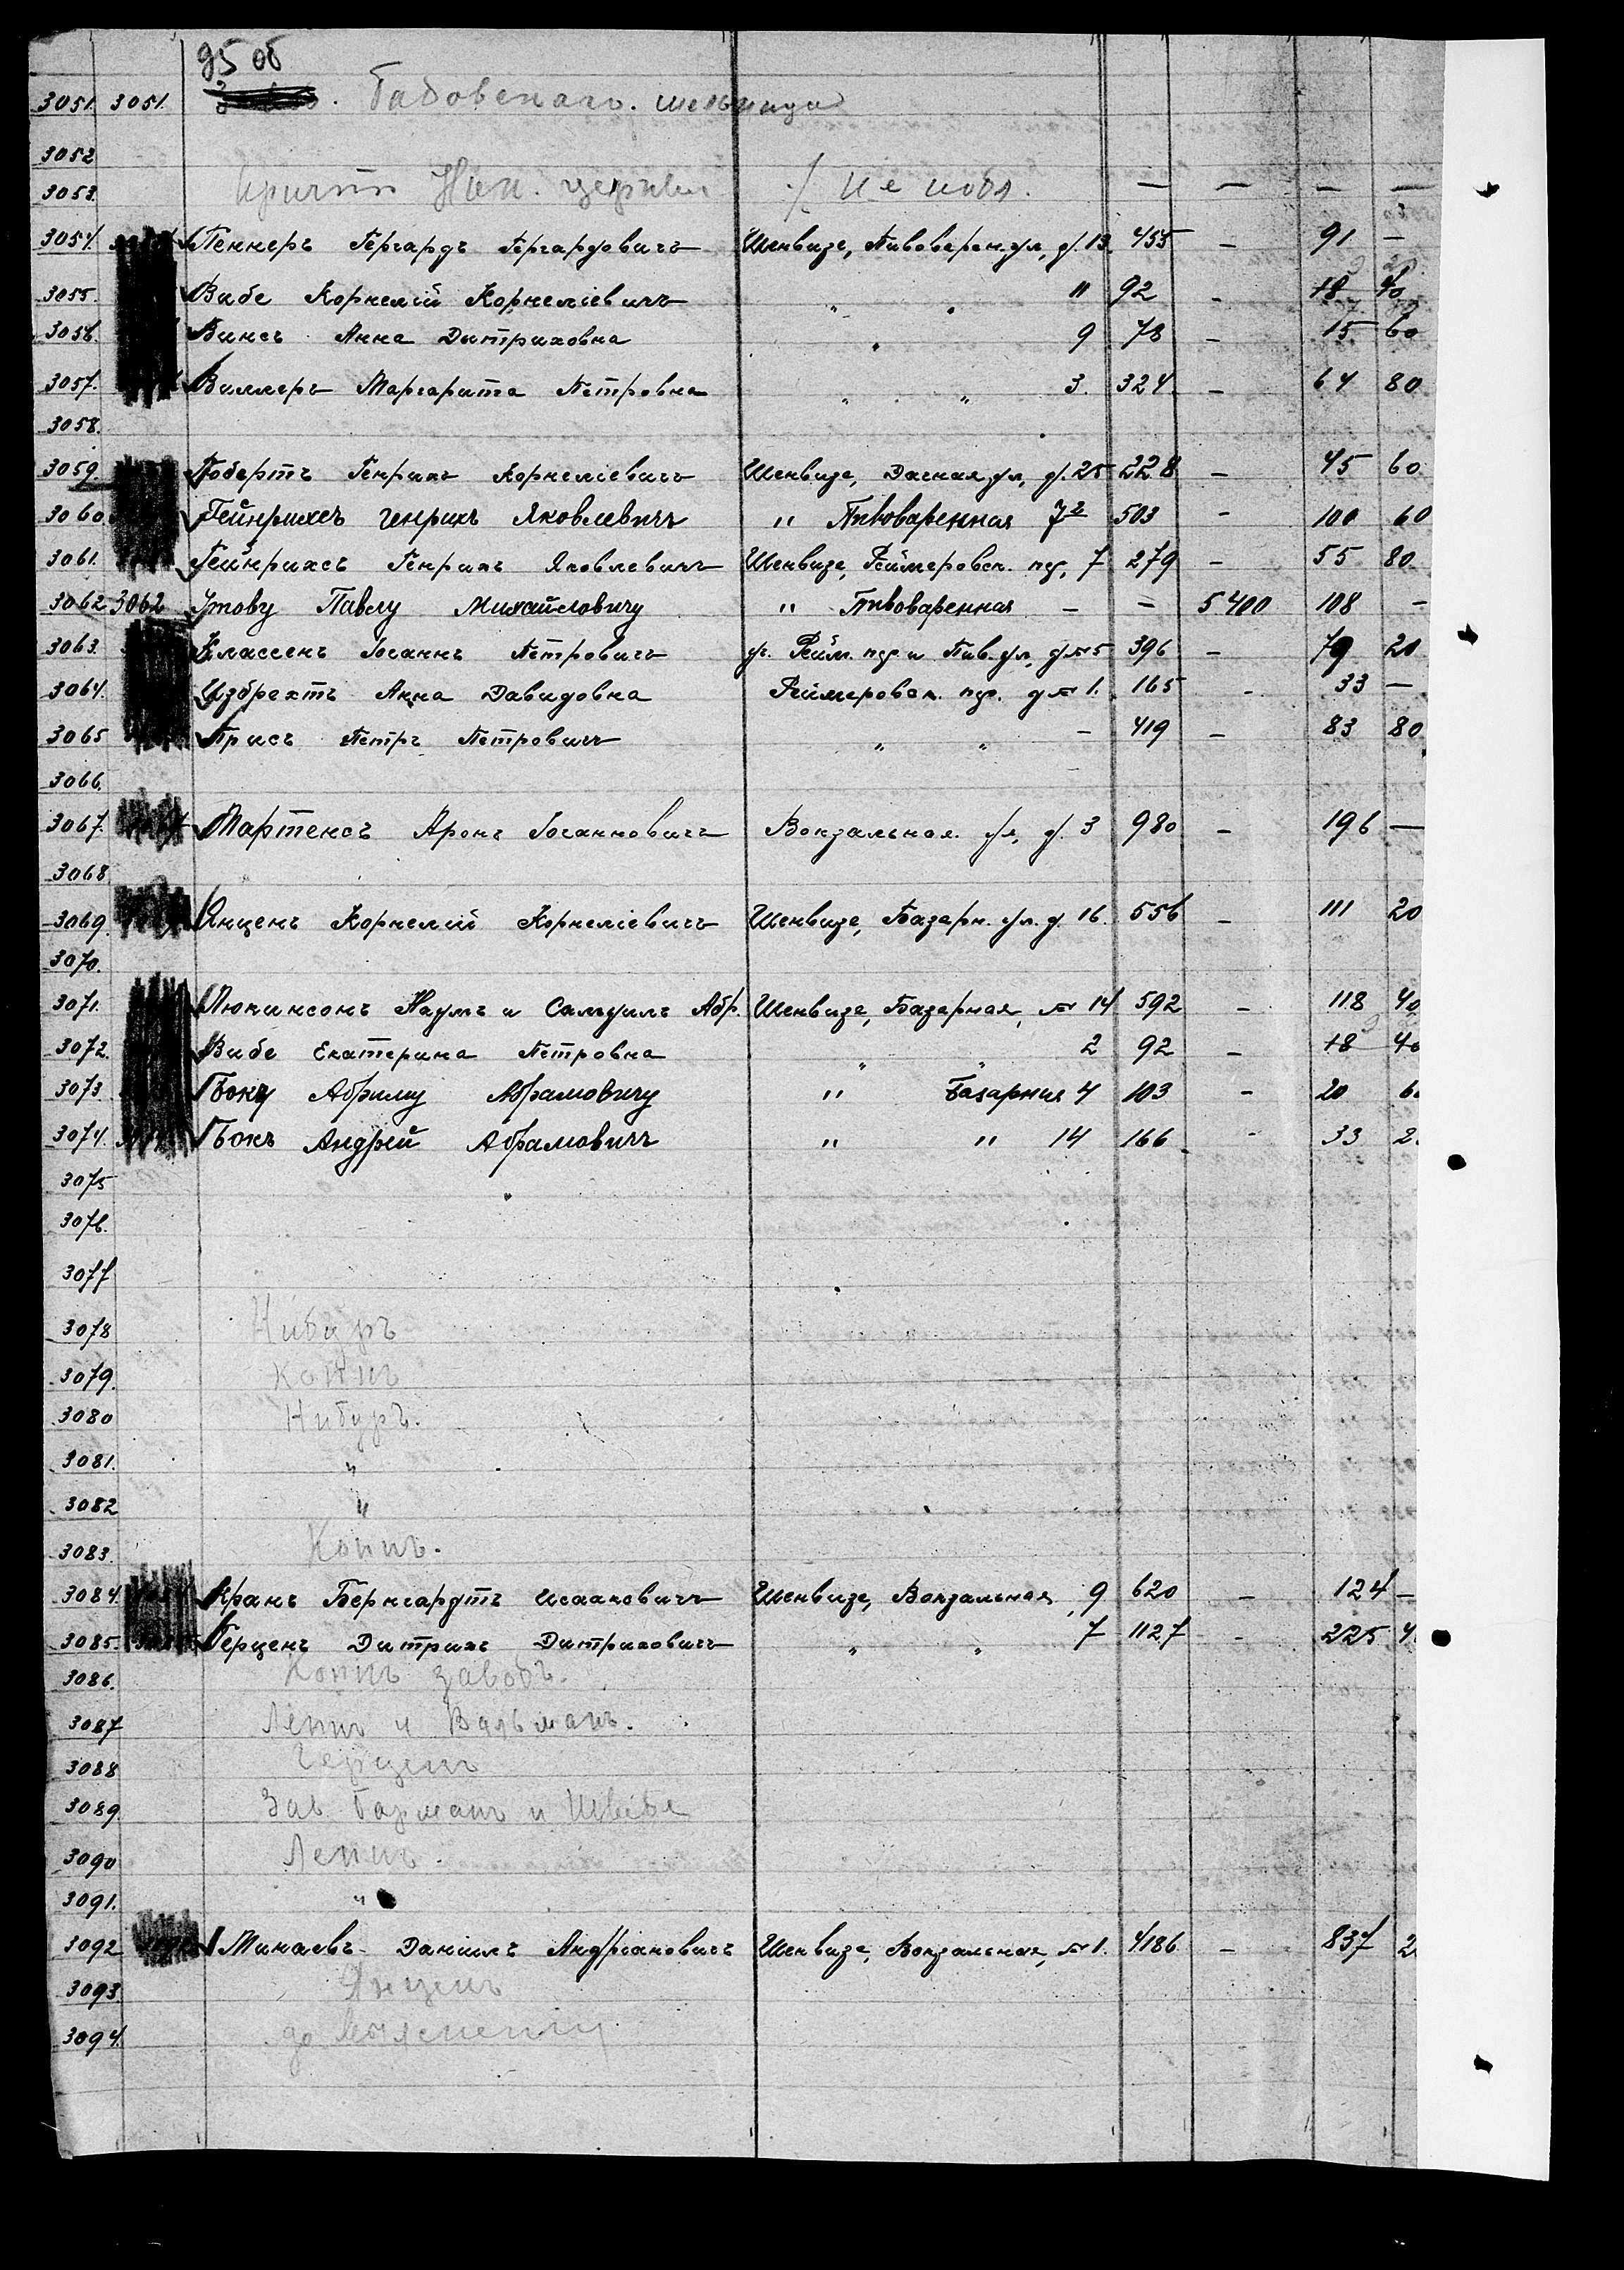 95 об
3051. 3051. Бадовскаго. мельница
3052
3053. Причтъ Ник. церкви ·/. Не нобл. — — — —
3054. Пеннеръ Гергардъ Гергардовичъ Шенвизе, Пивоварен. ул., д. 13. 455 - 91 —
3055. Вибе Корнелій Корнеліевичъ " " 11 92 - 18 40
3056. Винсъ Анна Дитриховна " 9 78 - 15 60
3057. Виллеръ Маргарита Петровна " " 3. 324 - 64 80
3058.
3059. Гобертъ Генрихъ Корнеліевичъ Шенвизе, Дачная ул, д. 25 228 - 45 60
3060 Гейнрихсъ Генрихъ Яковлевичъ " Пивоваренная 7² 503 - 100 60
3061. Гейнрихсъ Генрихъ Яковлевичъ Шенвизе, Реймеровск. пер, 7 279 - 55 80
3062 3062 Утову Павлу Михайловичу " Пивоваренная - - 5400 108 -
3063. Классенъ Іоганнъ Петровичъ уг. Рейм. пер и Пив. ул, д № 5 396 - 79 20
3064. Избрехтъ Анна Давидовна Реймеровск. пер. д № 1. 165 - 33 —
3065 Фрисъ Петръ Петровичъ " " - 419 - 83 80
3066.
3067. Мартенсъ Аронъ Іоганновичъ Вокзальная ул, д. 3 980 - 196 —
3068
3069 Янценъ Корнелій Корнеліевичъ Шенвизе, Базарн. ул. д. 16. 556 - 111 20
3070.
3071. Люпинсонъ Наумъ и Самуилъ Абр. Шенвизе, Базарная, № 14 592 - 118 40
3072. Вибе Екатерина Петровна " " 2 92 - 18 40
3073 Бокъ Абраму Абрамовичу " Базарная 4 103 - 20 6
3074. Бокъ Андрей Абрамовичъ " " 14 166 - 33 2
3075
3076.
3077
3078 Нибуръ
3079. Коппъ
3080 Нибуръ.
3081. "
3082 "
3083. Коппъ.
3084. Кранъ Бернгардтъ Исааковичъ Шенвизе, Вокзальная, 9 620 - 124 -
3085. Герценъ Дитрихъ Дитриховичъ " " 7 1127 - 225 4
3086. Коппъ заводъ.
3087 Леппъ и Вальманъ.
3088 Герценъ
3089. Зав. Бадманъ и Швебе
3090 Леппъ.
3091. "
3092 Минаевъ Даніилъ Андріановичъ Шенвизе, Вокзальная, № 1. 4186 - 837 2
3093. Янценъ
3094.